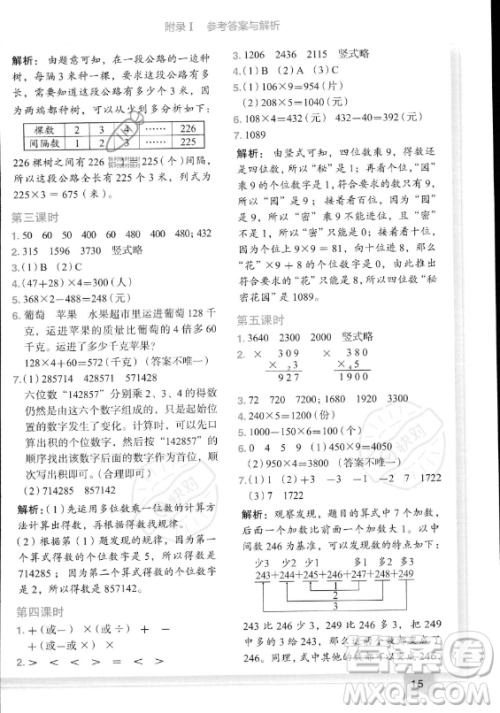 附录Ⅰ 参考答案与解析
解析：由题意可知，在一段公路的一边
每隔3米种一棵，要求这段公路有多
长，需知道有多少个间隔数，因
为两端都种，可以从少到多分析如下：
棵数 2 3 4 …… 226
间隔数 1 2 3 …… 225
226棵树之间有226 225(个)间隔，
所以这段公路全长有225个3米。列式为
225×3＝675(米)。
第三课时
1. 50 60 50 40 400 80 480;432
2. 315 1596 3730 竖式略
3. (47+28)×4=300(人)
4. 368×2-488=248(元)
6. 葡萄 苹果 水果超市里运进葡萄128千
克，运进苹果的质量比葡萄的4倍多60
千克。运进多少千克苹果？
128×4+60=572(千克)(答案不唯一)
7. (1)285714 428571 571428
六位数“142857”分别乘2、3、4的得数
仍然是由这六个数字组成的，只是数字
的位置发生了变化。计算时，可以先口
算出积的个位数字，然后按“142857”的
顺序找出该数字后面的数字，并依次抄
写出来即可。(合理即可)
(2)714285 857142
解析：(1)先运用多位数乘一位数的计算方
法计算出得数，再比较发现得数的规律。
(2)根据第(1)题发现的规律，因为第一
个算式得数的个位数字是5，所以得数是
714285；因为第二个算式得数的个位数字
是2，所以得数是857142。
第四课时
1. +(或－) ×(或÷) +(或－)
×(或÷) +(或－) ×
2. > < > < > <
3. 1206 2436 2115 竖式略
4. (1)B (2)A (3)C
5. (1)106×9=954(片)
(2)208×5=1040(元)
6. 108×4=432(元) 432>400 不够
7. 1089
解析：由竖式可知，四位数乘9，得数还
是四位数，所以“秘”是1；再看“园”
乘9的个位数字是1，所以“园”
是9；接着看百位，因为百位
没有向千位进位，且“密”不
是1，所以“密”是0；接着看
个位9×9=81，向十位进8，那么
“花”×9+8的个位数字是0，由此
可以推出“花”是8，所以四位数“秘
密花园”是1089。
第五课时
1. 3640 2300 2000 竖式略
2. × 309 × 380
× 3 × 5
927 1900
3. 72 720 7200;1680 1680 168
4. 240×5=1200(份)
5. 1000-150×4=400(克)
6. (1)0 4 5 9 (2)1 2 3 4
(2)950×4=3800(答案不唯一)
7. (1)1 2 3 3 2 1 7 1722
(2)246 7 1722
解析：观察发现，题目的算式中7个加数，
中间加数是246。可以发现算式中的7个
加数与246的关系，如下图所示：
少3 少2 少1 多1 多2 多3
243+244+245+246+247+248+249
243比246少3，249比246多3，把249
中多的3给243，那么243和249都可以变
成246。同理，式中其他数都可以变成246，
15
答案圈
MXQE.COM